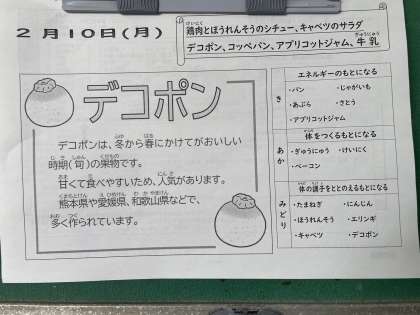 2月10日(月)
鶏肉とほうれんそうのシチュー、キャベツのサラダ
デコポン、コッペパン、アプリコットジャム、牛乳
デコポン
デコポンは、冬から春にかけてがおいしい
時期(旬)の果物です。
甘くて食べやすいため、人気があります。
熊本県や愛媛県、和歌山県などで、
多く作られています。
き
エネルギーのもとになる
・パン ・じゃがいも
・あぶら ・さとう
・アプリコットジャム
あか
体をつくるもとになる
・ぎゅうにゅう ・けいにく
・ベーコン
みどり
体の調子をととのえるもとになる
・たまねぎ ・にんじん
・ほうれんそう ・エリンギ
・キャベツ ・デコポン